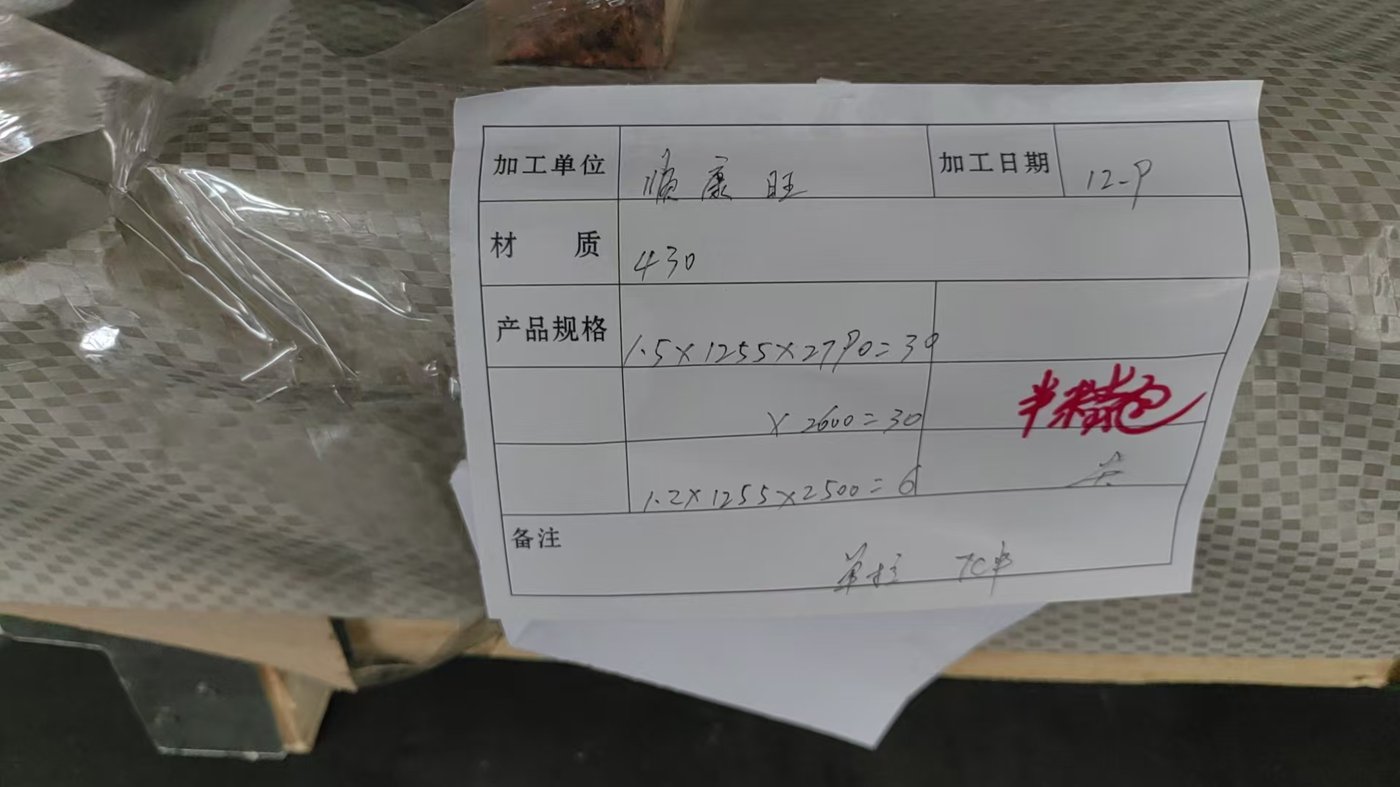 加工单位 顺康旺 加工日期 12-9
材 质 430
产品规格 1.5×1255×2790=30
×2600=30
半精包
1.2×1255×2500=6
备注
单拉 7C中